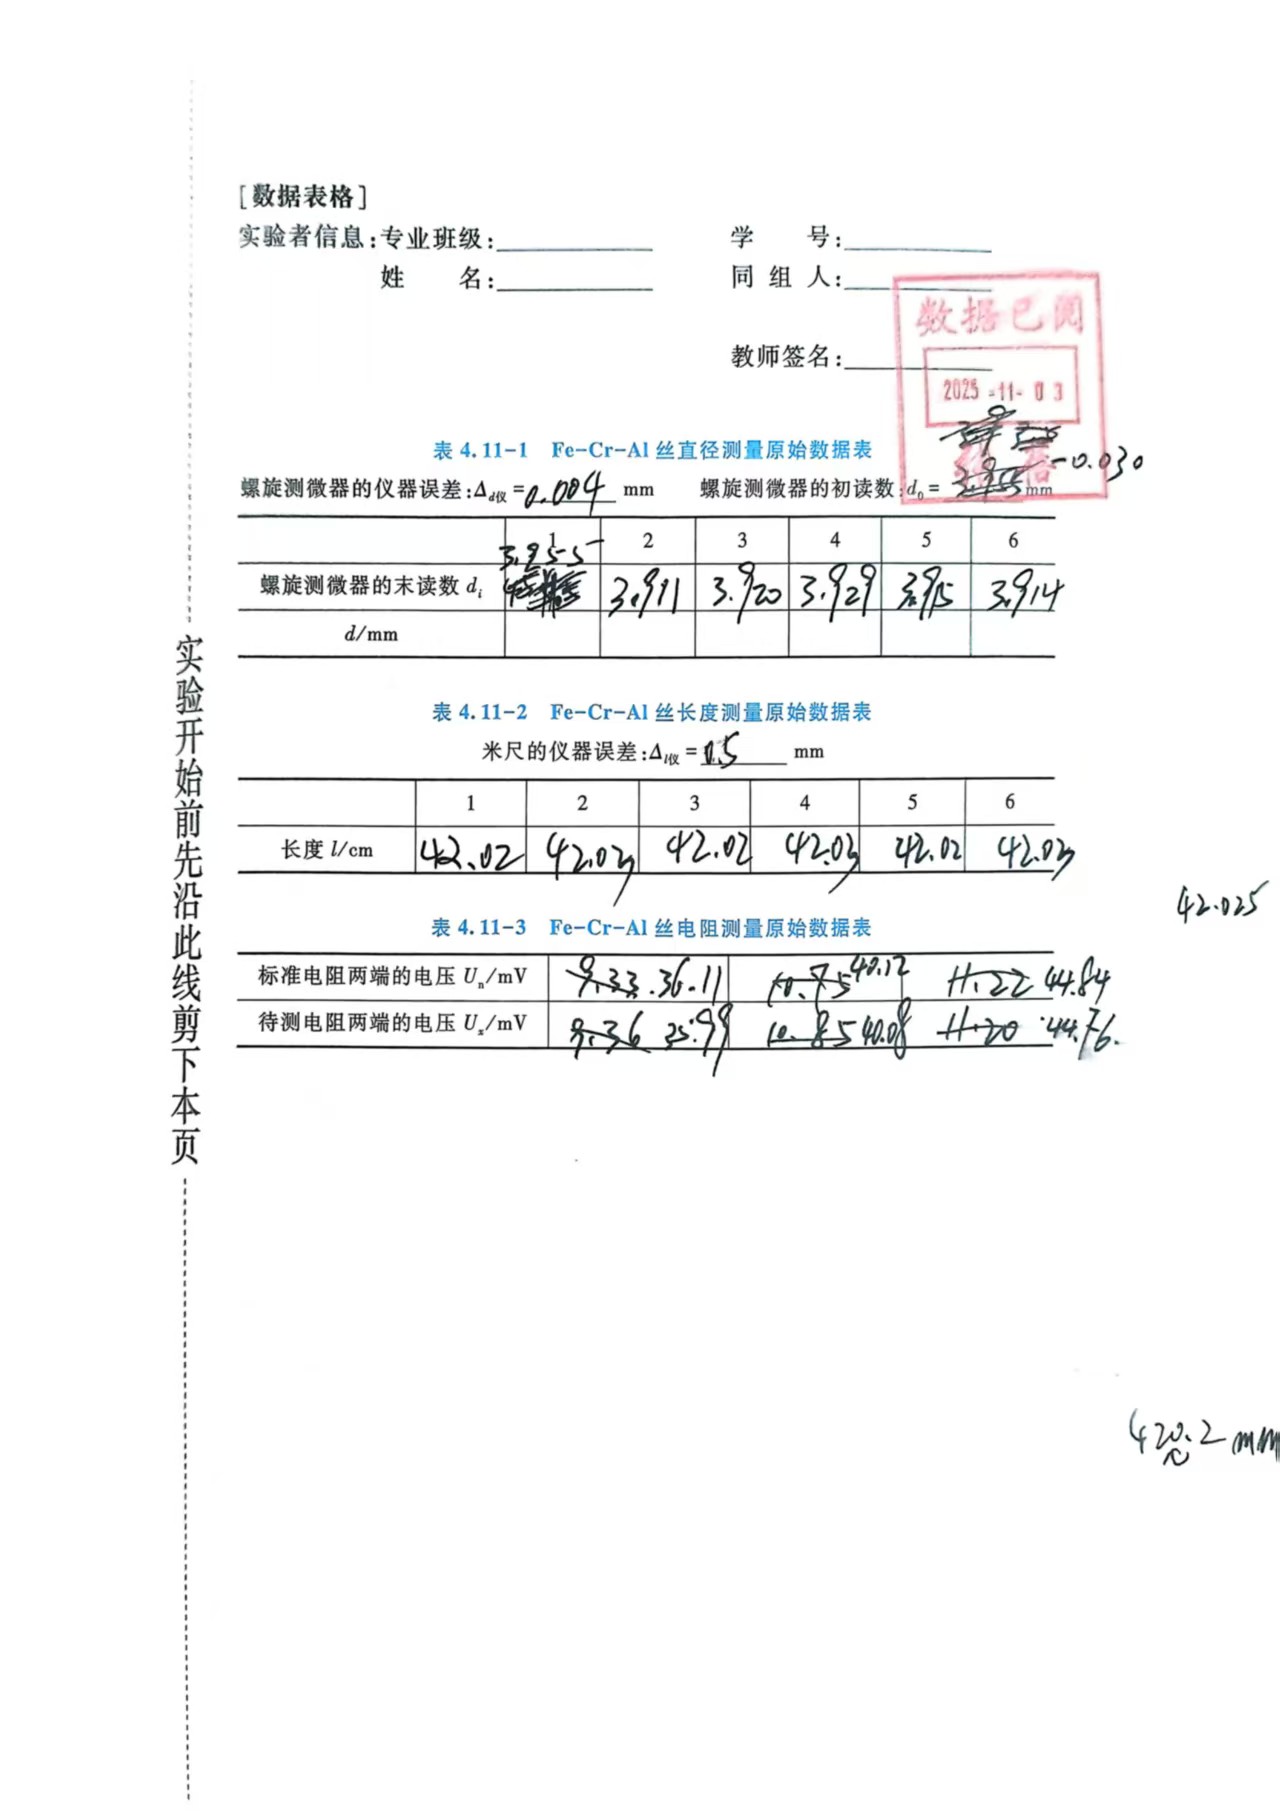 [数据表格]
实验者信息:专业班级: 学 号:
姓 名: 同 组 人:
数据已阅
教师签名:
2025-11-03
表 4.11-1 Fe-Cr-Al 丝直径测量原始数据表
螺旋测微器的仪器误差:Δd仪 = 0.004 mm 螺旋测微器的初读数:d₀ = mm -0.030
1 2 3 4 5 6
螺旋测微器的末读数 dᵢ 3.911 3.920 3.929 3.915 3.914
d/mm
表 4.11-2 Fe-Cr-Al 丝长度测量原始数据表
米尺的仪器误差:Δl仪 = 0.5 mm
1 2 3 4 5 6
长度 l/cm 42.02 42.03 42.02 42.03 42.02 42.03
42.025
表 4.11-3 Fe-Cr-Al 丝电阻测量原始数据表
标准电阻两端的电压 Uₙ/mV 9.33 36.11 10.75 40.12 11.22 44.84
待测电阻两端的电压 Uₓ/mV 9.36 35.99 10.85 40.08 11.20 44.76
420.2 mm
实验开始前先沿此线剪下本页